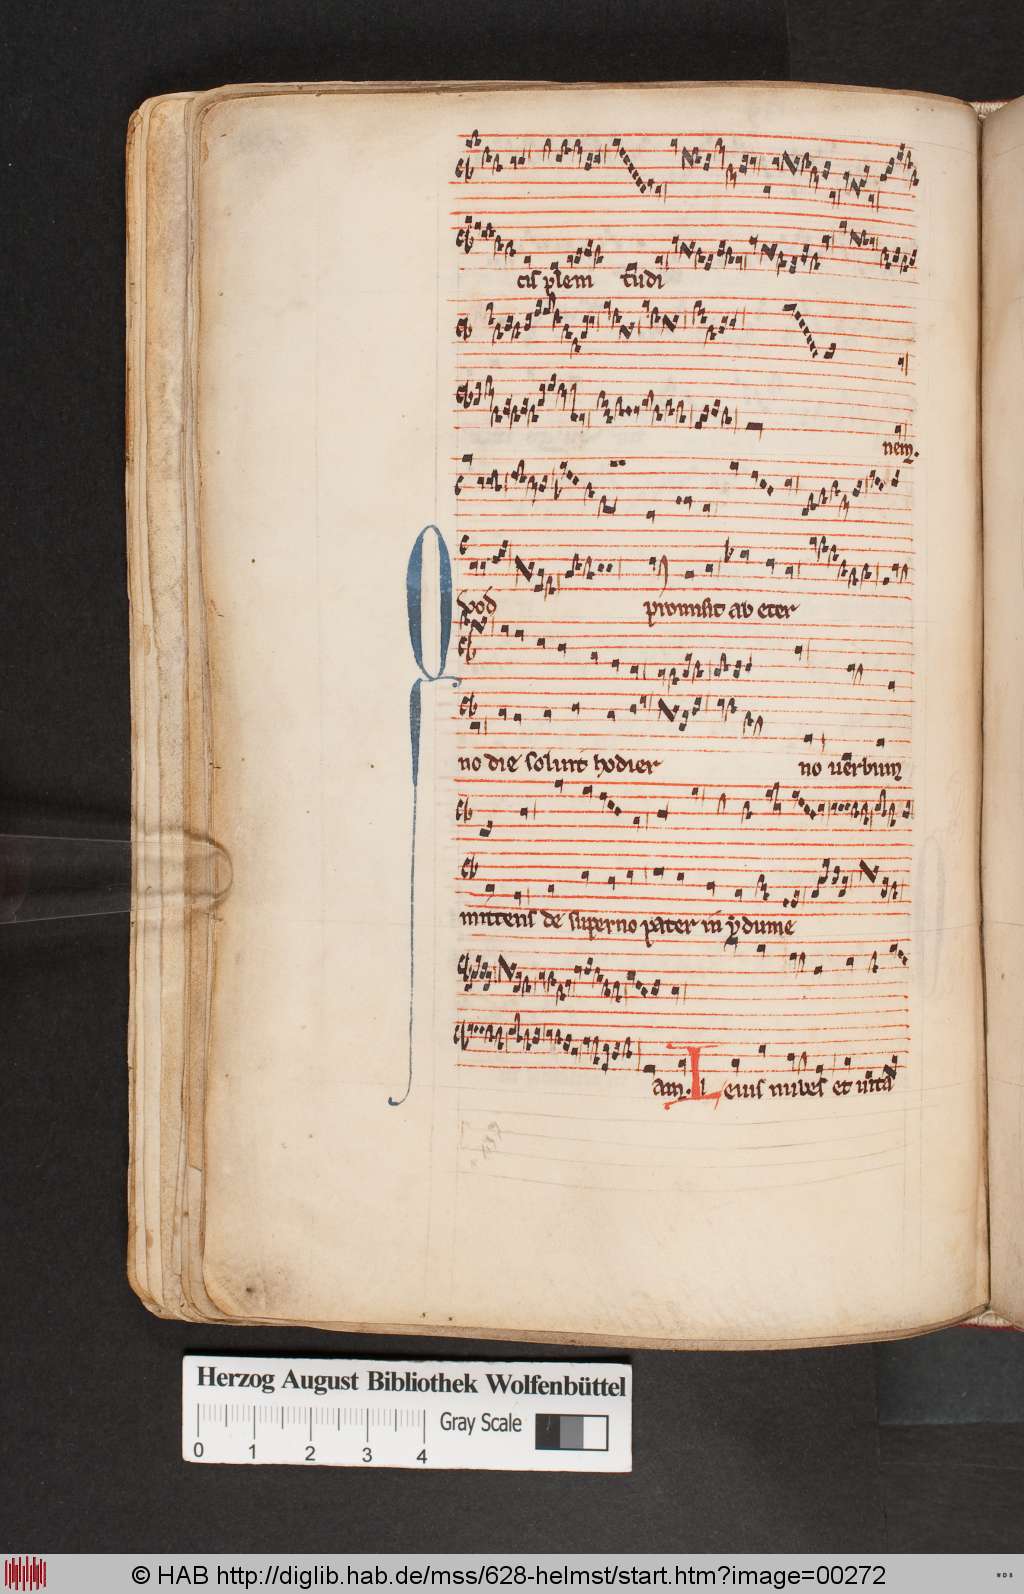 cis plem tudi
nem.
Qvod promisit ab eter
no die soluit hodier no uerbum
mittens de superno pater in
am. Leuis nubes et uita
Herzog August Bibliothek Wolfenbüttel
0 1 2 3 4 Gray Scale
© HAB http://diglib.hab.de/mss/628-helmst/start.htm?image=00272